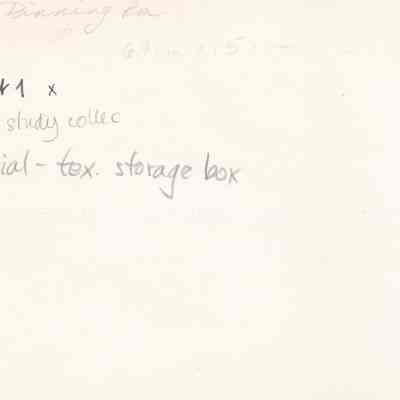 Dinning Rm
1 x
study collec
ial - tex. storage box